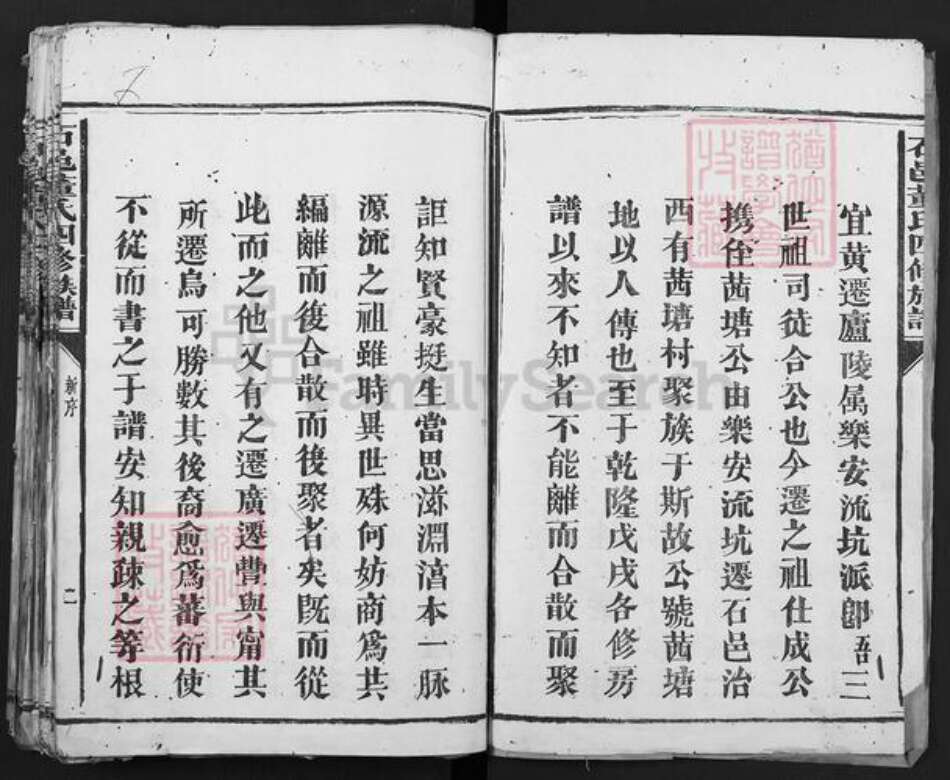 石邑董氏四修族譜
宜黃遷廬陵属樂安流坑派卽吾三
世祖司徒合公也今遷之祖仕成公
携侄茜塘公由樂安流坑遷石邑治
西有茜塘村聚族于斯故公號茜塘
地以人傳也至于乾隆戊戌各修房
譜以來不知者不能離而合散而聚
詎知賢豪挺生當思滋淵濇本一脉
源流之祖雖時異世殊何妨商爲共
編離而後合散而後聚者矣旣而從
此而之他又有之遷廣遷豐與甯其
所遷烏可勝數其後裔愈爲蕃衍使
不從而書之于譜安知親疎之等根
石邑董氏四修族譜
新序
二
FamilySearch